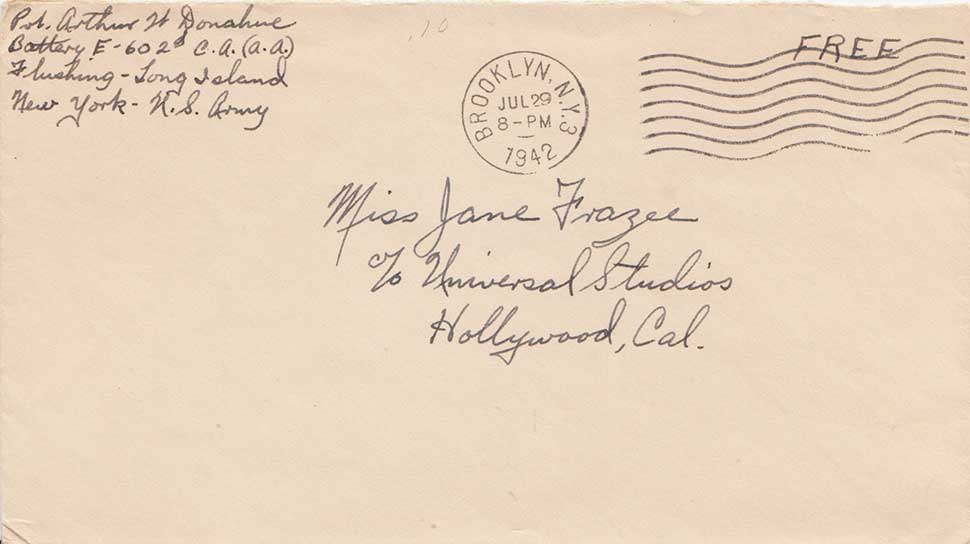 Pvt. Arthur W Donahue
Battery E-602d C.A. (A.A.)
Flushing - Long Island
New York - U.S. Army
10
FREE
BROOKLYN, N.Y. 3
JUL 29
8-PM
1942
Miss Jane Frazee
c/o Universal Studios
Hollywood, Cal.